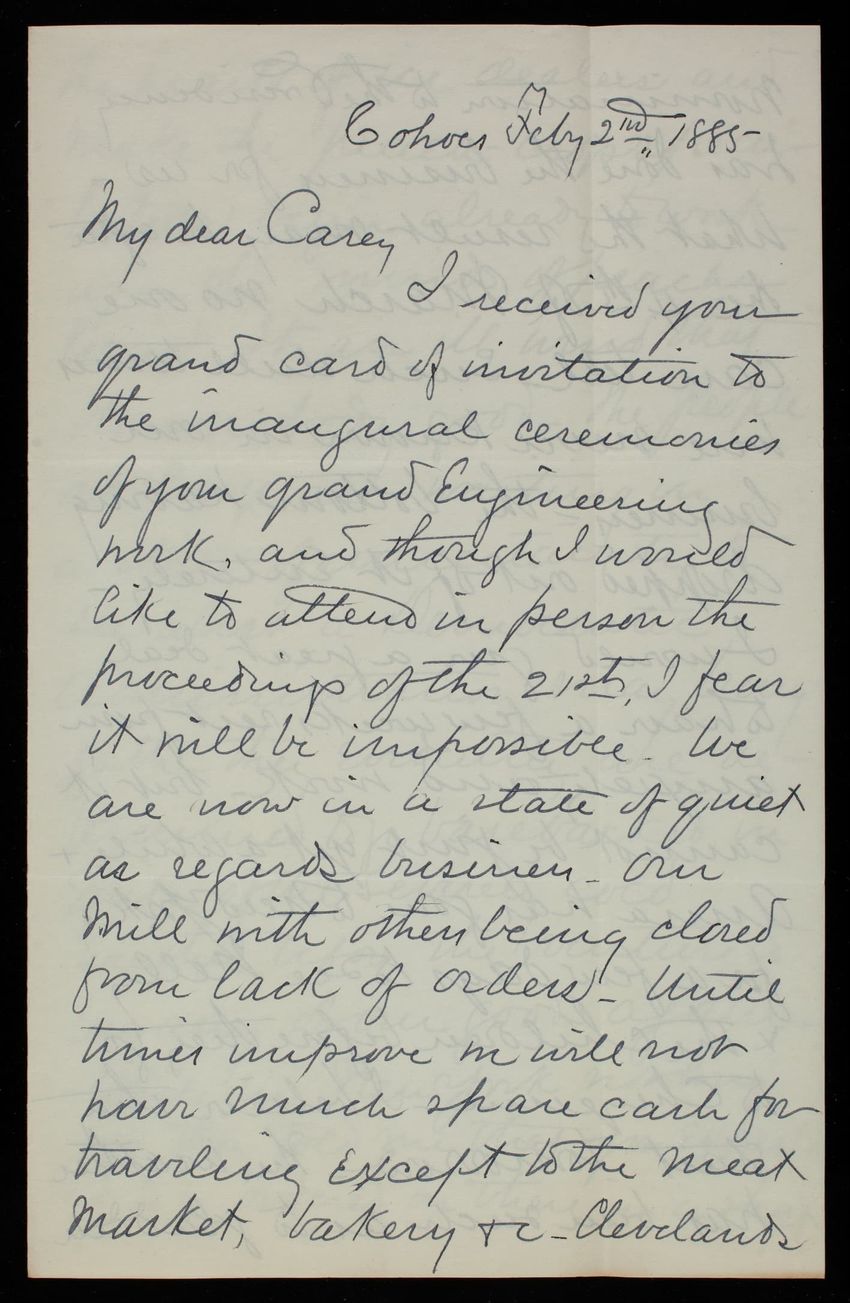 Cohoes Feby 2nd 1885
My dear Carey
I received your
grand card of invitation to
the inaugural ceremonies
of your grand Engineering
work, and though I would
like to attend in person the
proceedings of the 21st, I fear
it will be impossible. We
are now in a state of quiet
as regards business - Our
Mill with others being closed
from lack of orders - Until
times improve we will not
have much spare cash for
traveling Except to the Meat
Market, bakery &c - Clevelands